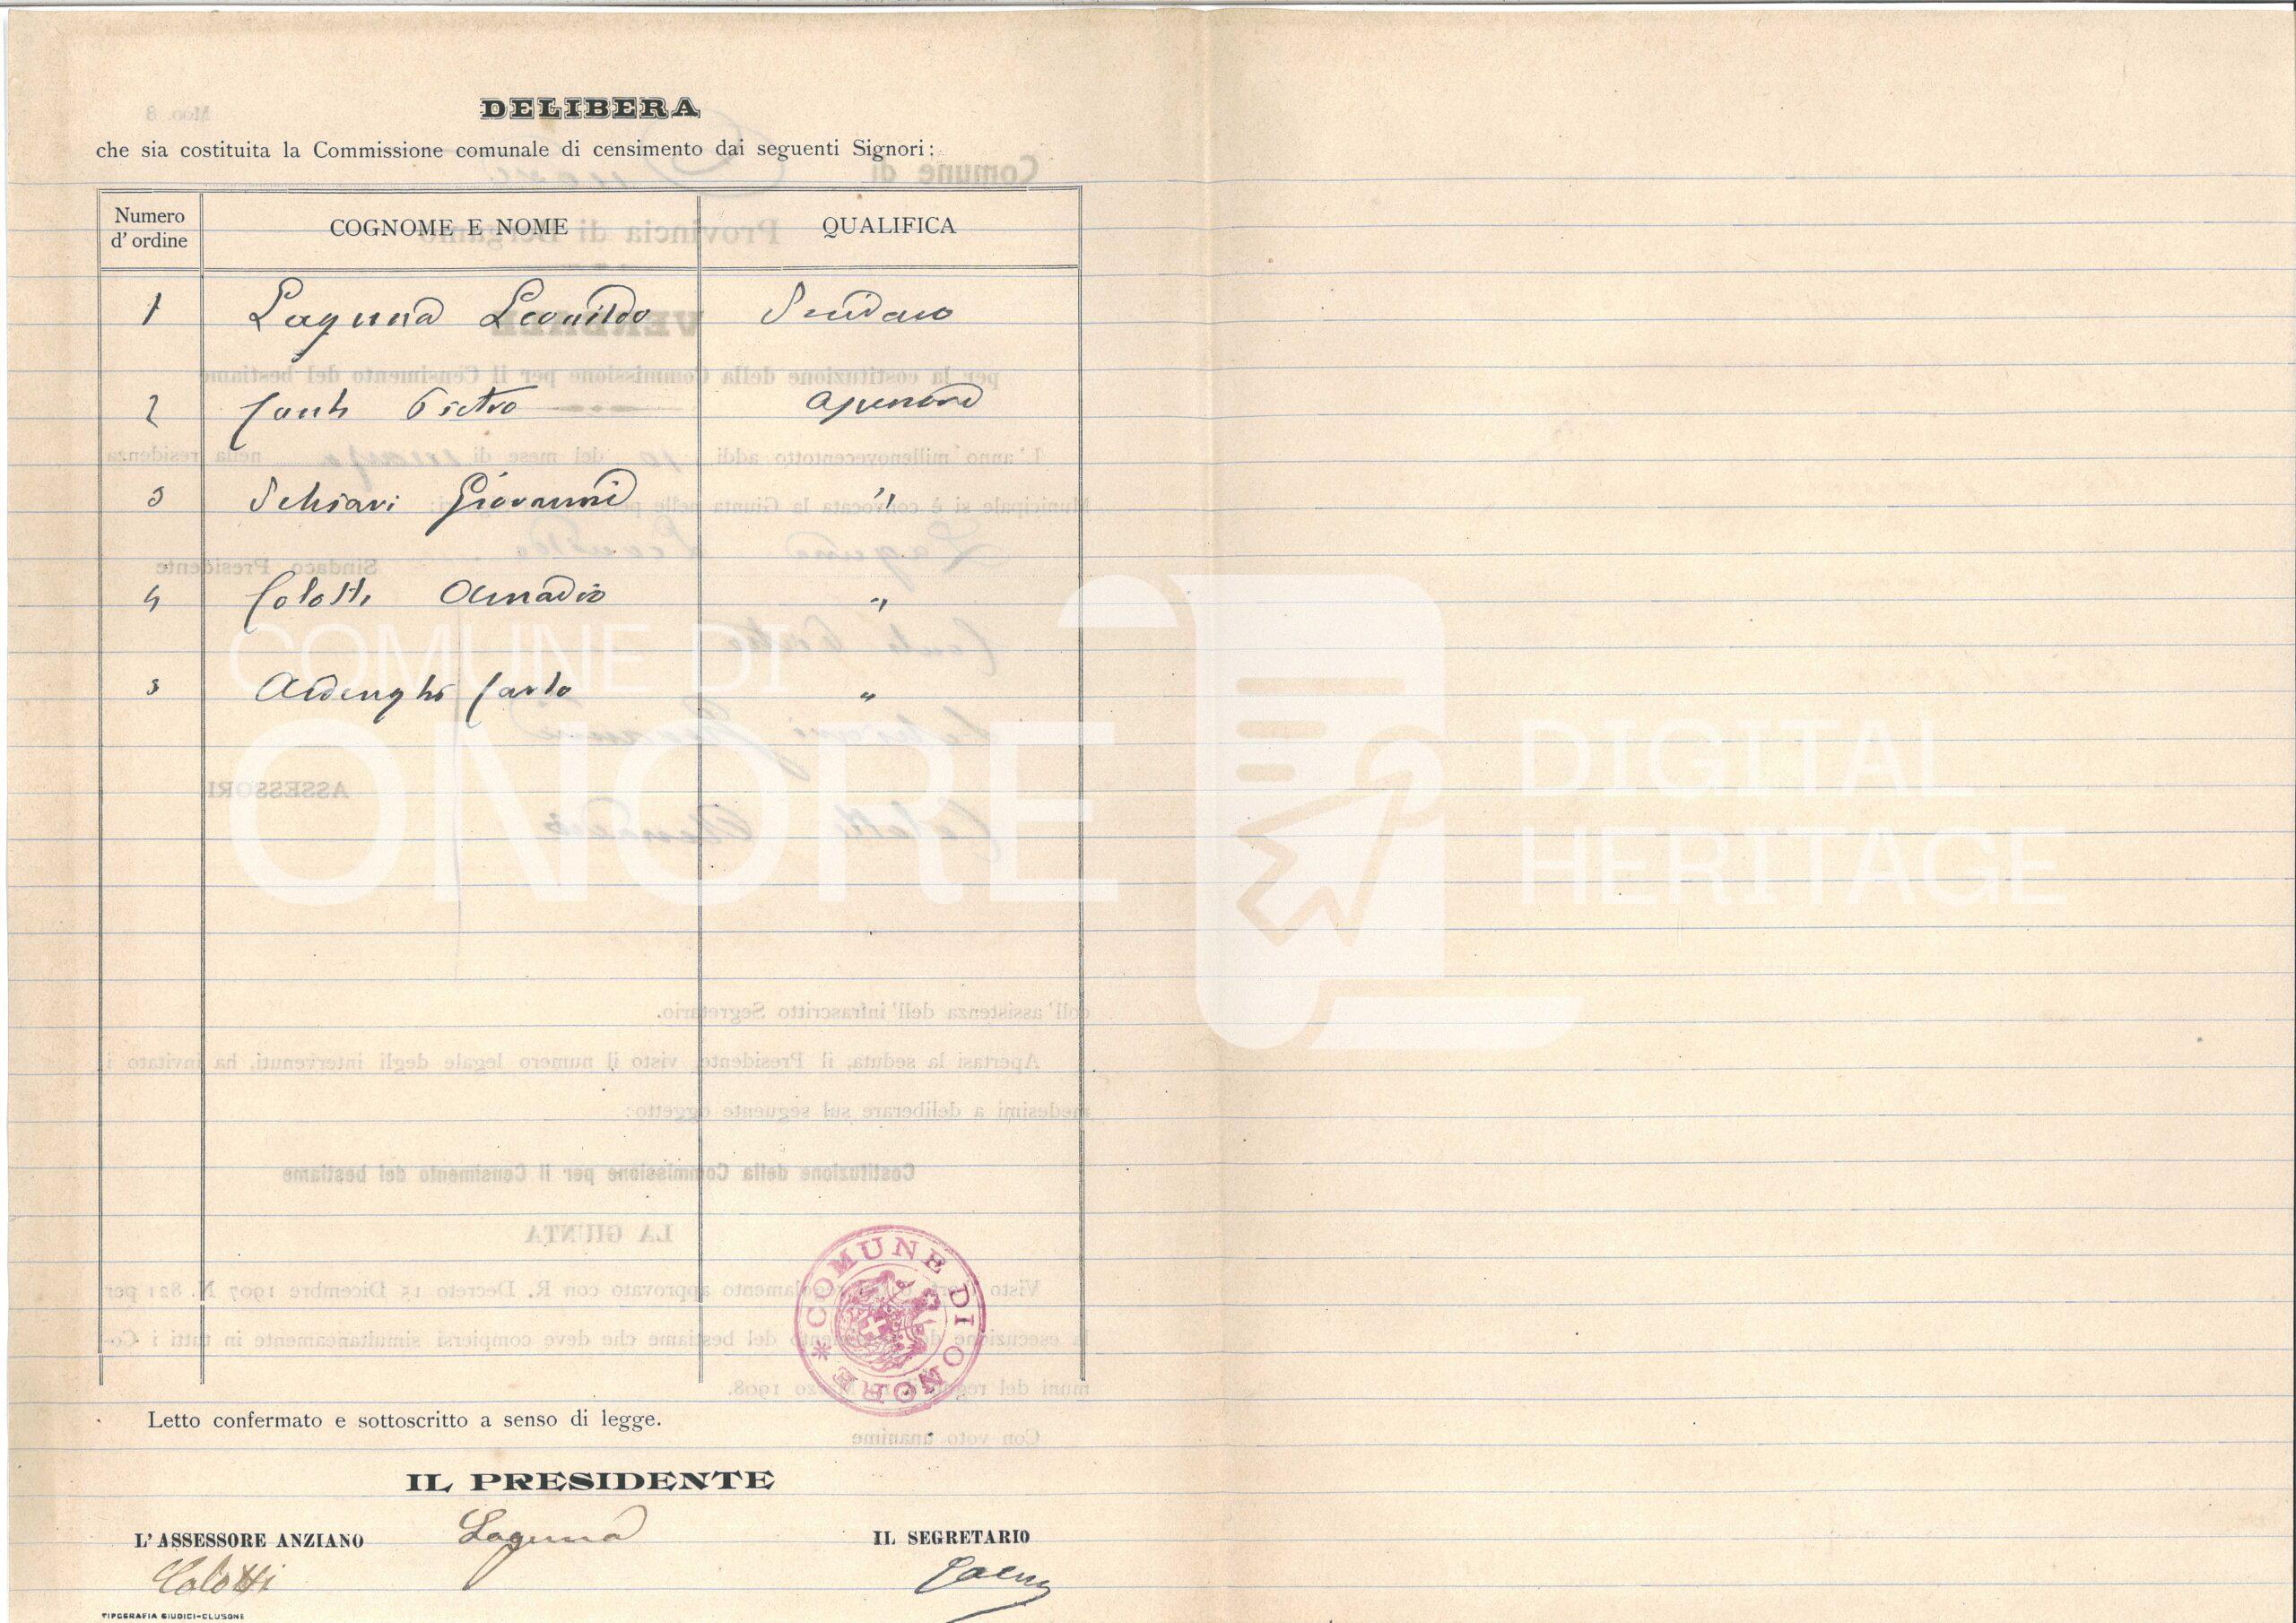 DELIBERA
che sia costituita la Commissione comunale di censimento dai seguenti Signori:
Numero d' ordine COGNOME E NOME QUALIFICA
1 Laguna Leonildo Sindaco
2 Conti Pietro
3 Schiavi Giovanni "
4 Colotti Amadio "
5 Ardenghi Carlo "
COMUNE DI
ONORE
DIGITAL
HERITAGE
* COMUNE DI ONORE
Letto confermato e sottoscritto a senso di legge.
IL PRESIDENTE
L' ASSESSORE ANZIANO Laguna IL SEGRETARIO
Colotti
TIPOGRAFIA GIUDICI-CLUSONE